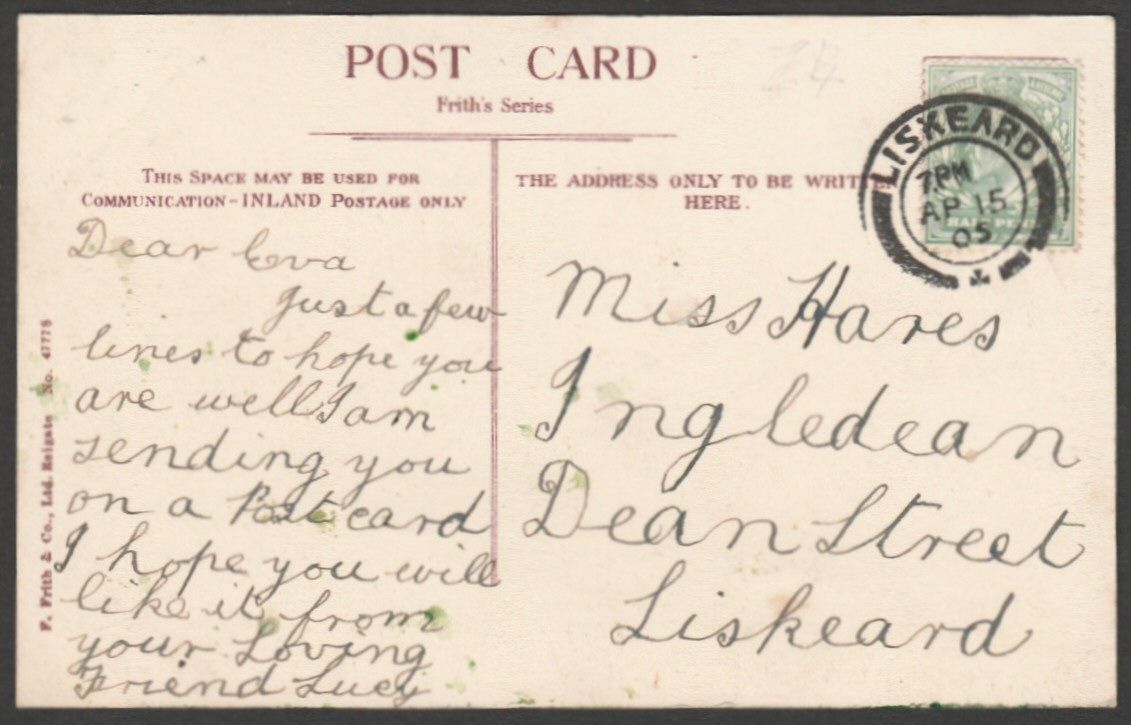 POST CARD
Frith's Series
THIS SPACE MAY BE USED FOR
COMMUNICATION-INLAND POSTAGE ONLY
THE ADDRESS ONLY TO BE WRITTEN
HERE.
LISKEARD
7.PM
AP 15
05
HALF PENNY
Dear Eva
Just a few
lines to hope you
are well I am
sending you
on a Post card
I hope you will
like it from
your Loving
Friend Lucy
Miss Hares
Ingledean
Dean Street
Liskeard
F. Frith & Co., Ltd. Reigate No. 47778